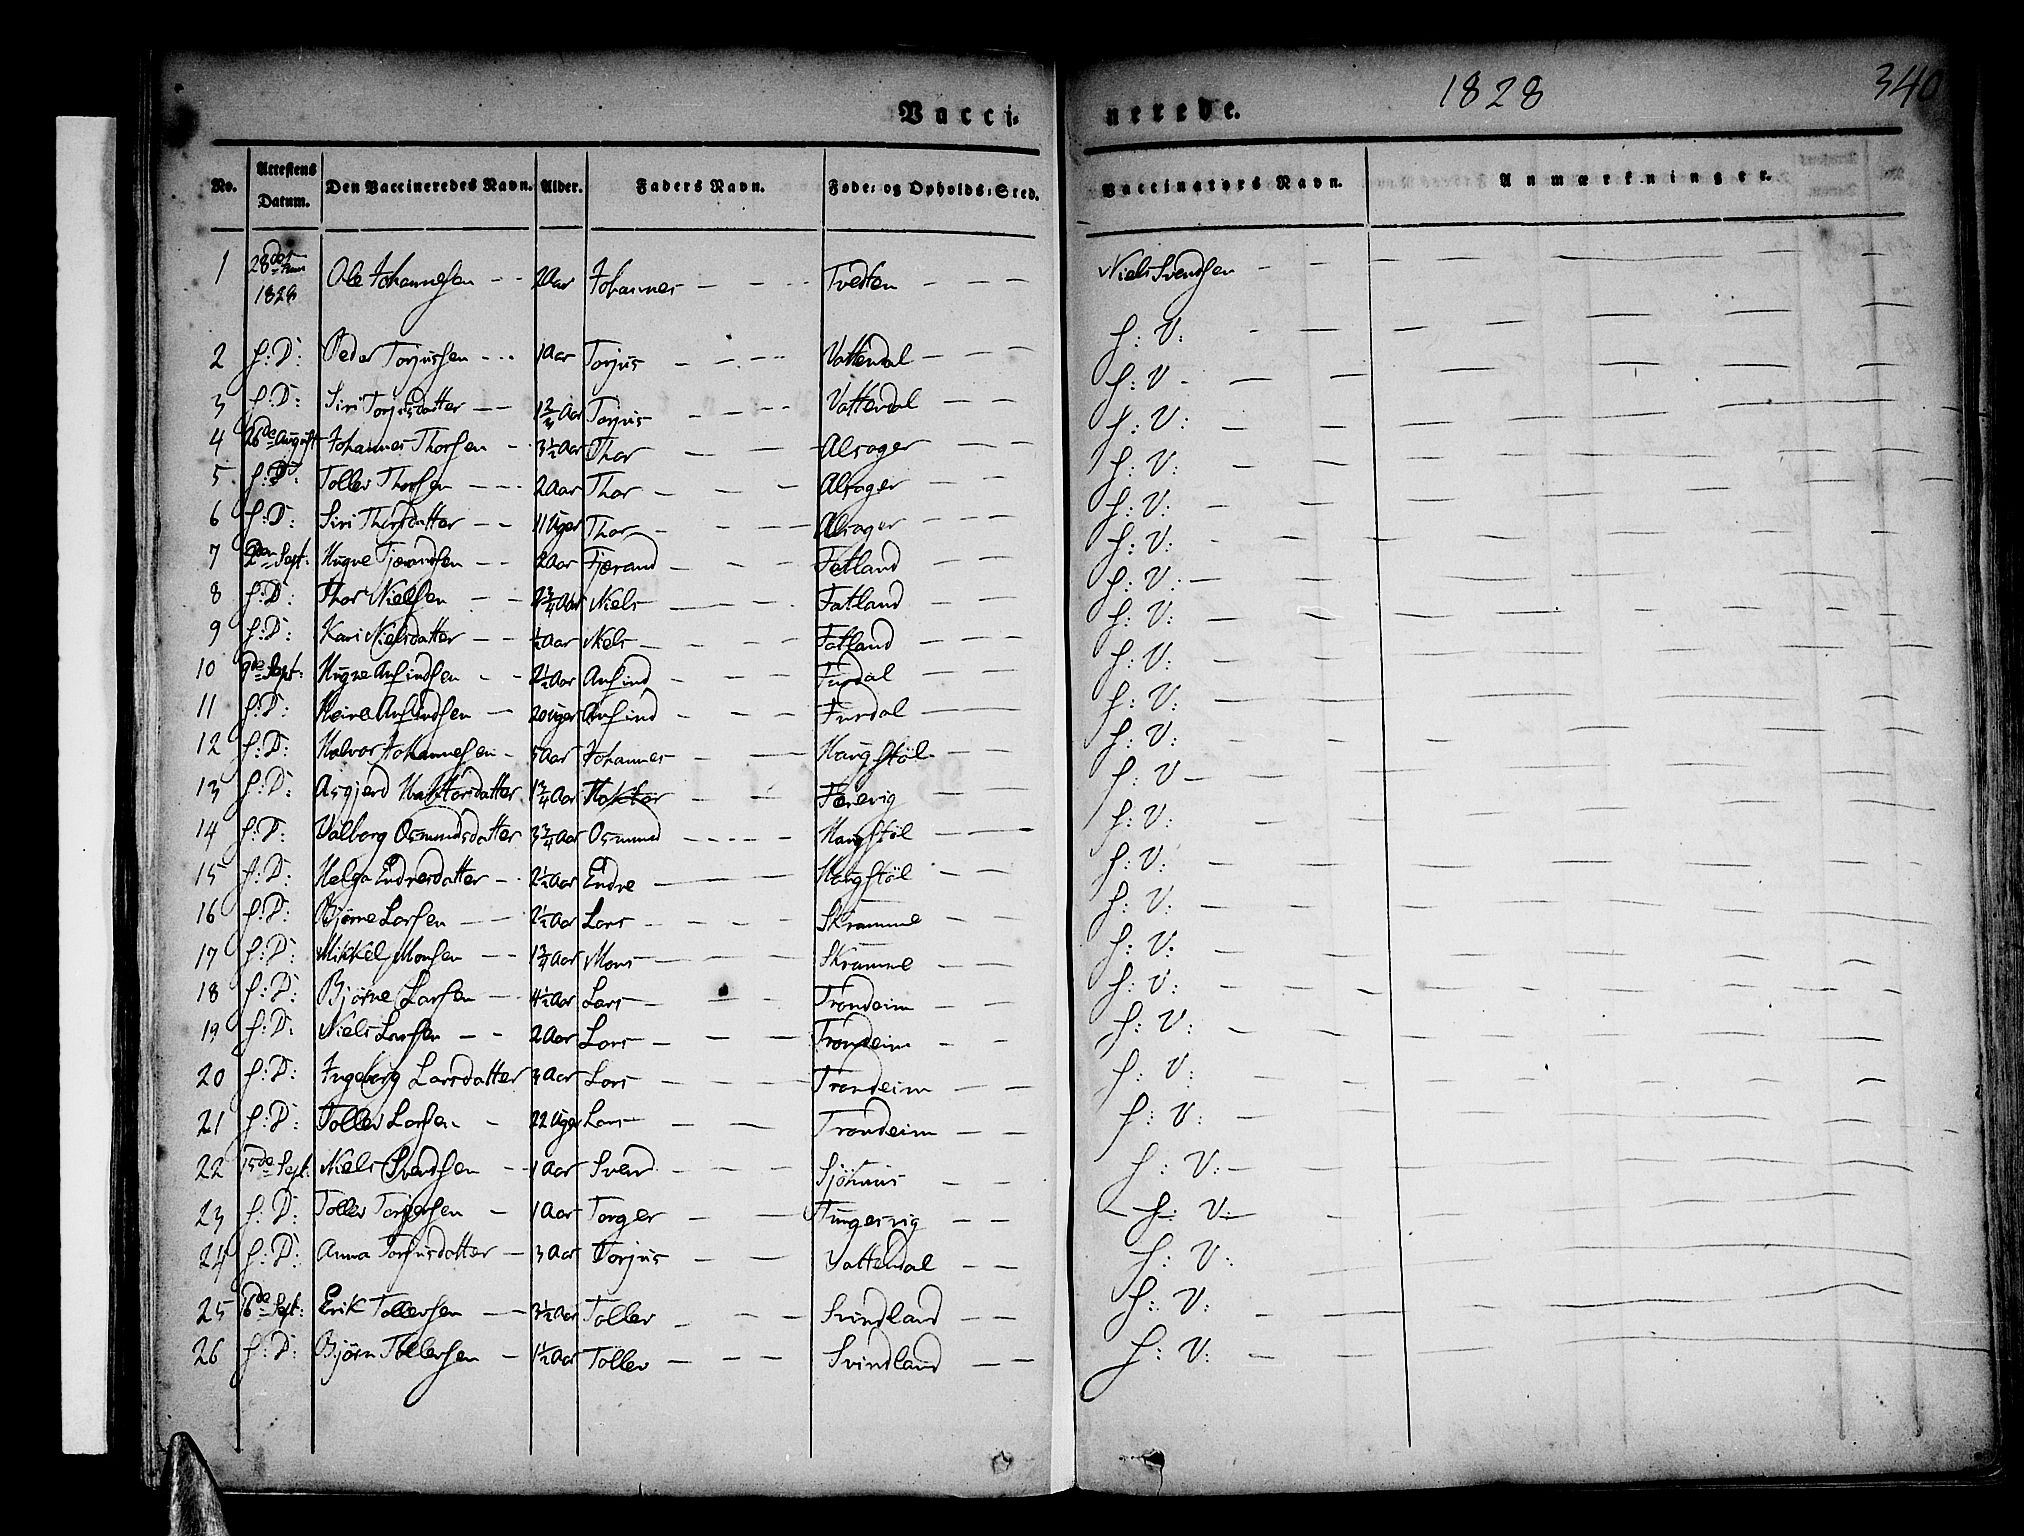 Vacci- nerede. 1828 340
No. Attestens Datum. Den Vaccineredes Navn. Alder. Faders Navn. Føde- og Opholds-Sted. Vaccinators Navn. Anmærkninger.
1 28de 1828 Ole Johannesen 2 Aar Johannes Tvedten Niels Svendsen
2 f: D: Peder Torjussen 1 Aar Torjus Vattendal f: V:
3 f: D: Siri Torjusdatter 1 2/3 Aar Torjus Vattendal f: V
4 26de August Johannes Thorsen 3 1/2 Aar Thor Alsager f: V:
5 f: D: Tollev Thorsen 2 Aar Thor Alsager f: V:
6 f: D: Siri Thorsdatter 11 Uger Thor Alsager f: V:
7 2den Sept: Hugne Tjerandsen 2 Aar Tjerand Fatland f: V:
8 f: D: Thor Nielsen 2 3/4 Aar Niels Fatland f: V:
9 f: D: Kari Nielsdatter 1/2 Aar Niels Fatland f: V:
10 9de Sept: Hugne Anfindsen 2 1/2 Aar Anfind Furdal f: V:
11 f: D: Heine Anfindsen 20 Uger Anfind Furdal f: V:
12 f: D: Halvor Johannesen 5 Aar Johannes Haugstöl f: V:
13 f: D: Asgjerd Haktorsdatter 1 3/4 Aar Haktor Førevig f: V
14 f: D: Valborg Osmundsdatter 3 3/4 Aar Osmund Haugstöl f: V:
15 f: D: Helga Endresdatter 2 1/2 Aar Endre Haugstöl f: V:
16 f: D: Bjørne Larsen 2 1/2 Aar Lars Skramme f: V:
17 f: D: Mikkel Monsen 1 3/4 Aar Mons Skramme f: V:
18 f: D: Bjørne Larsen 4 1/2 Aar Lars Trondeim f: V:
19 f: D: Niels Larsen 2 Aar Lars Trondeim f: V:
20 f: D: Ingeborg Larsdatter 3 Aar Lars Trondeim f: V:
21 f: D: Tollev Larsen 22 Uger Lars Trondeim f: V:
22 15de Sept: Niels Svendsen 1 Aar Svend f: V:
23 f: D: Tollev Torgersen 1 Aar Torger Tungesvig f: V:
24 f: D: Anna Torjusdatter 3 Aar Torjus Vattendal f: V:
25 16de Sept: Erik Tollevsen 3 1/2 Aar Tollev Svindland f: V:
26 f: D: Bjørn Tollevsen 1 1/2 Aar Tollev Svindland f: V: